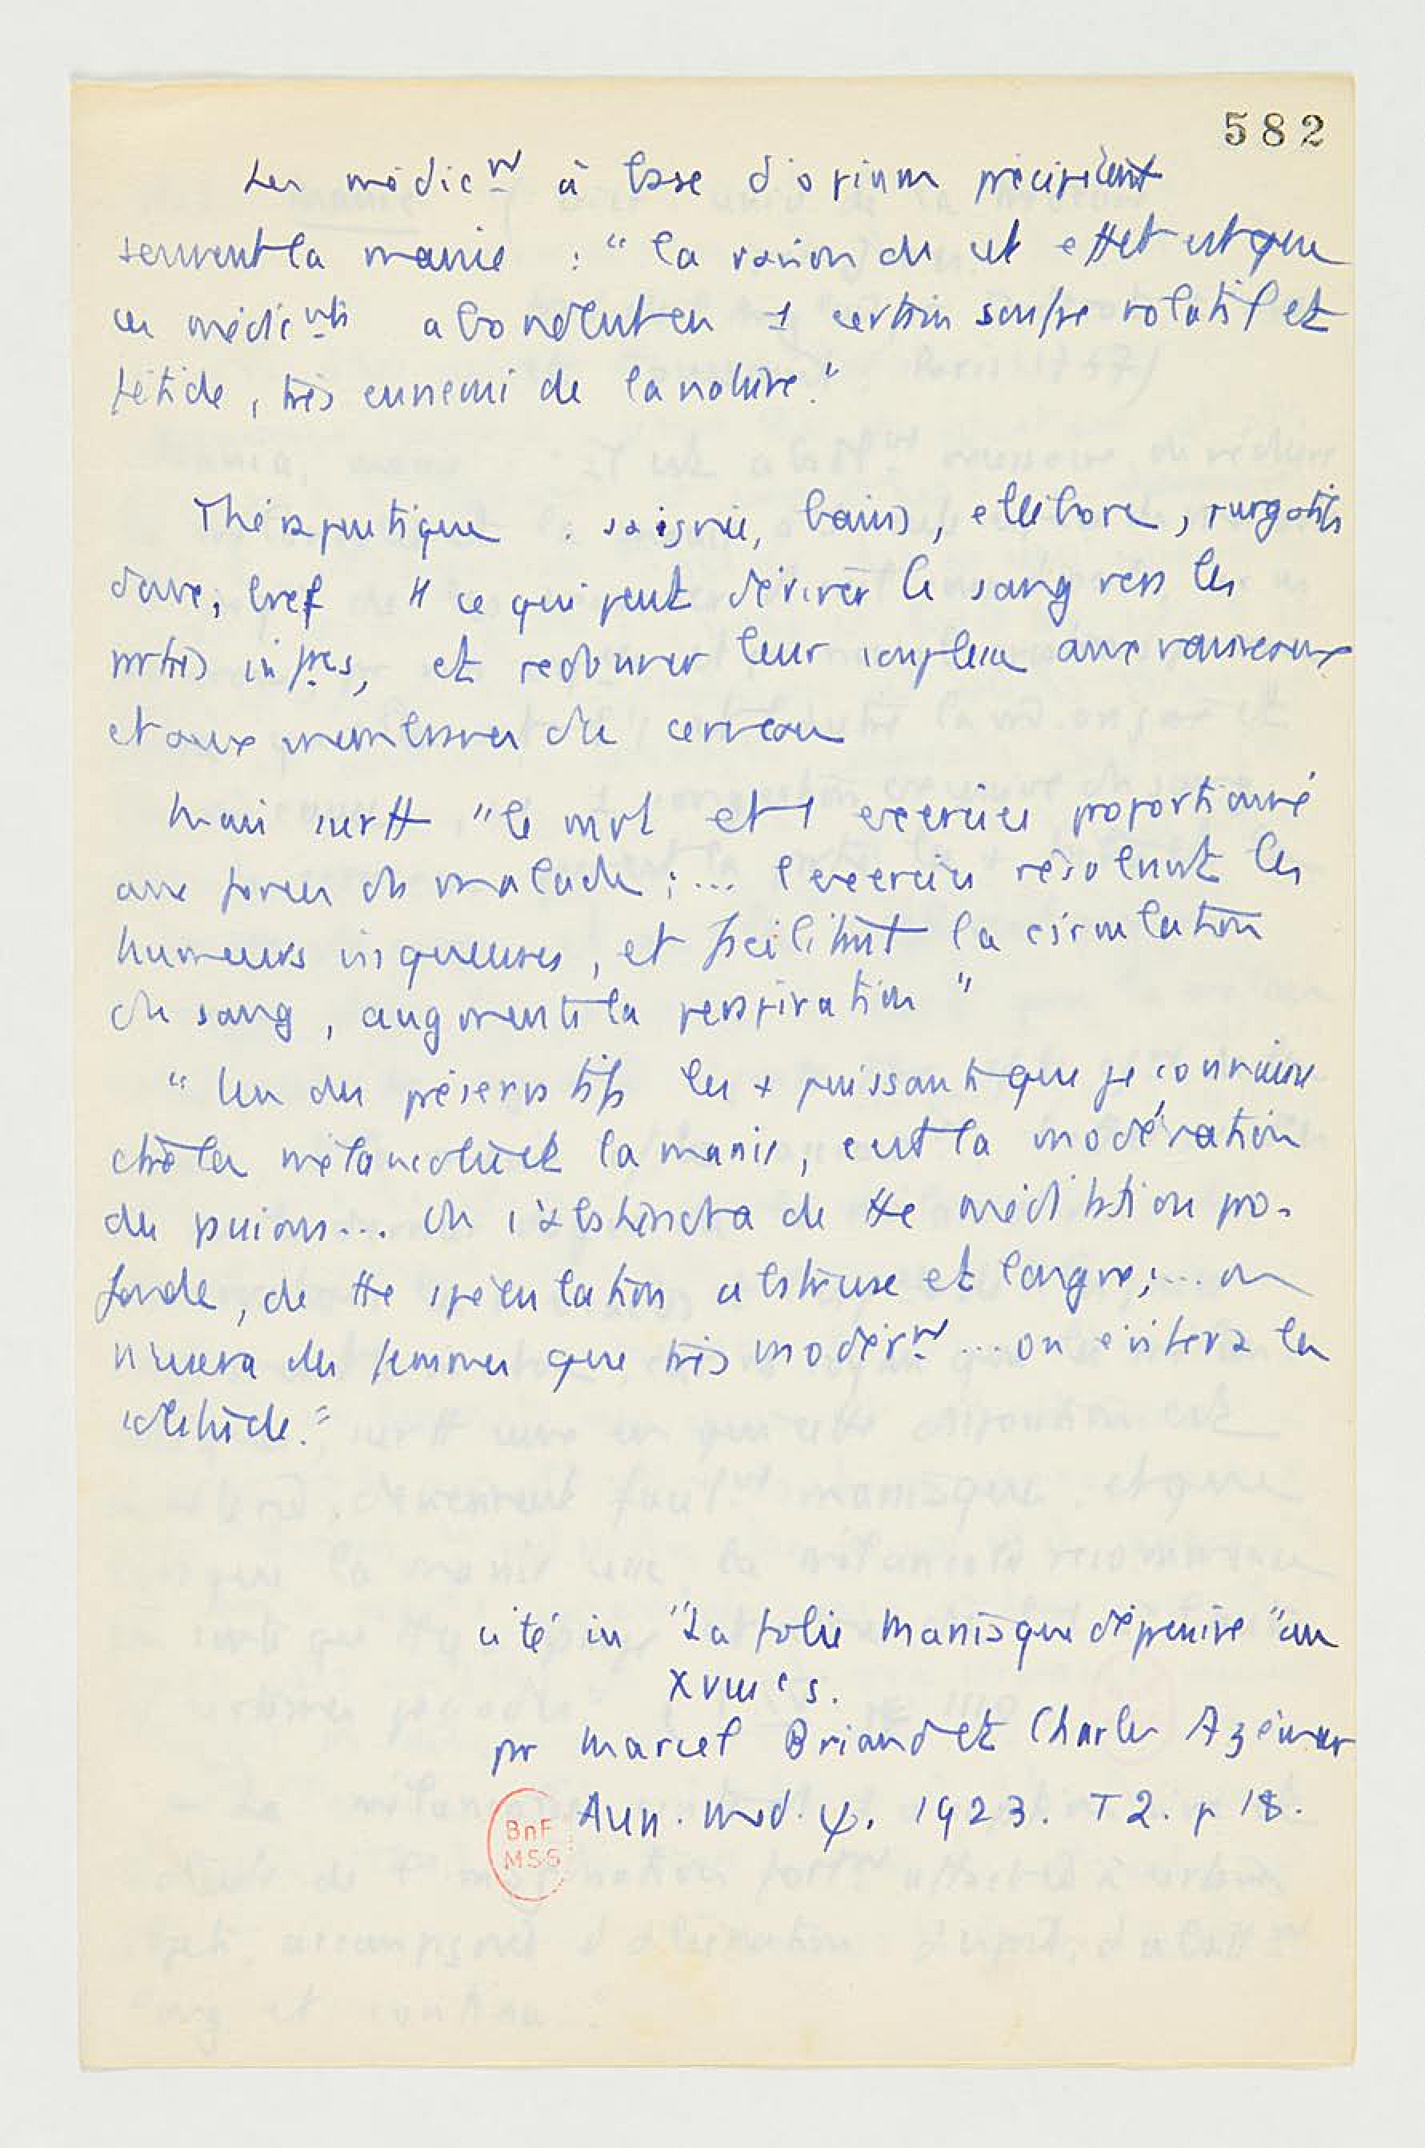 582
Les médicnt à base d'opium précipitent
souvent la manie : "la raison de cet effet est que
ces médicnts abondent en 1 certain soufre volatil et
fétide, très ennemi de la nature."
Thérapeutique : saignée, bains, ellébore, purgatifs
doux, bref tt ce qui peut dériver le sang vers les
parties infres, et redonner leur souplesse aux vaisseaux
et aux membranes du cerveau
Mais surtt "le mvt et 1 exercice proportionné
aux forces du malade ;... l'exercice résolvant les
humeurs visqueuses, et facilitant la circulation
du sang, augmente la respiration"
"Un des préservatifs les + puissants que je connaisse
ctre la mélancolie et la manie, c'est la modération
des passions... On s'abstiendra de tte méditation pro-
fonde, de tte spéculation abstruse et longue ;... on
n'usera des femmes que très modérnt ... on évitera la
solitude."
cité in "La folie maniaque dépressive" au
XVIIIe s.
par Marcel Briand et Charles Azémar
Ann. med. ψ. 1923. T2. p 18.
BnF
MSS